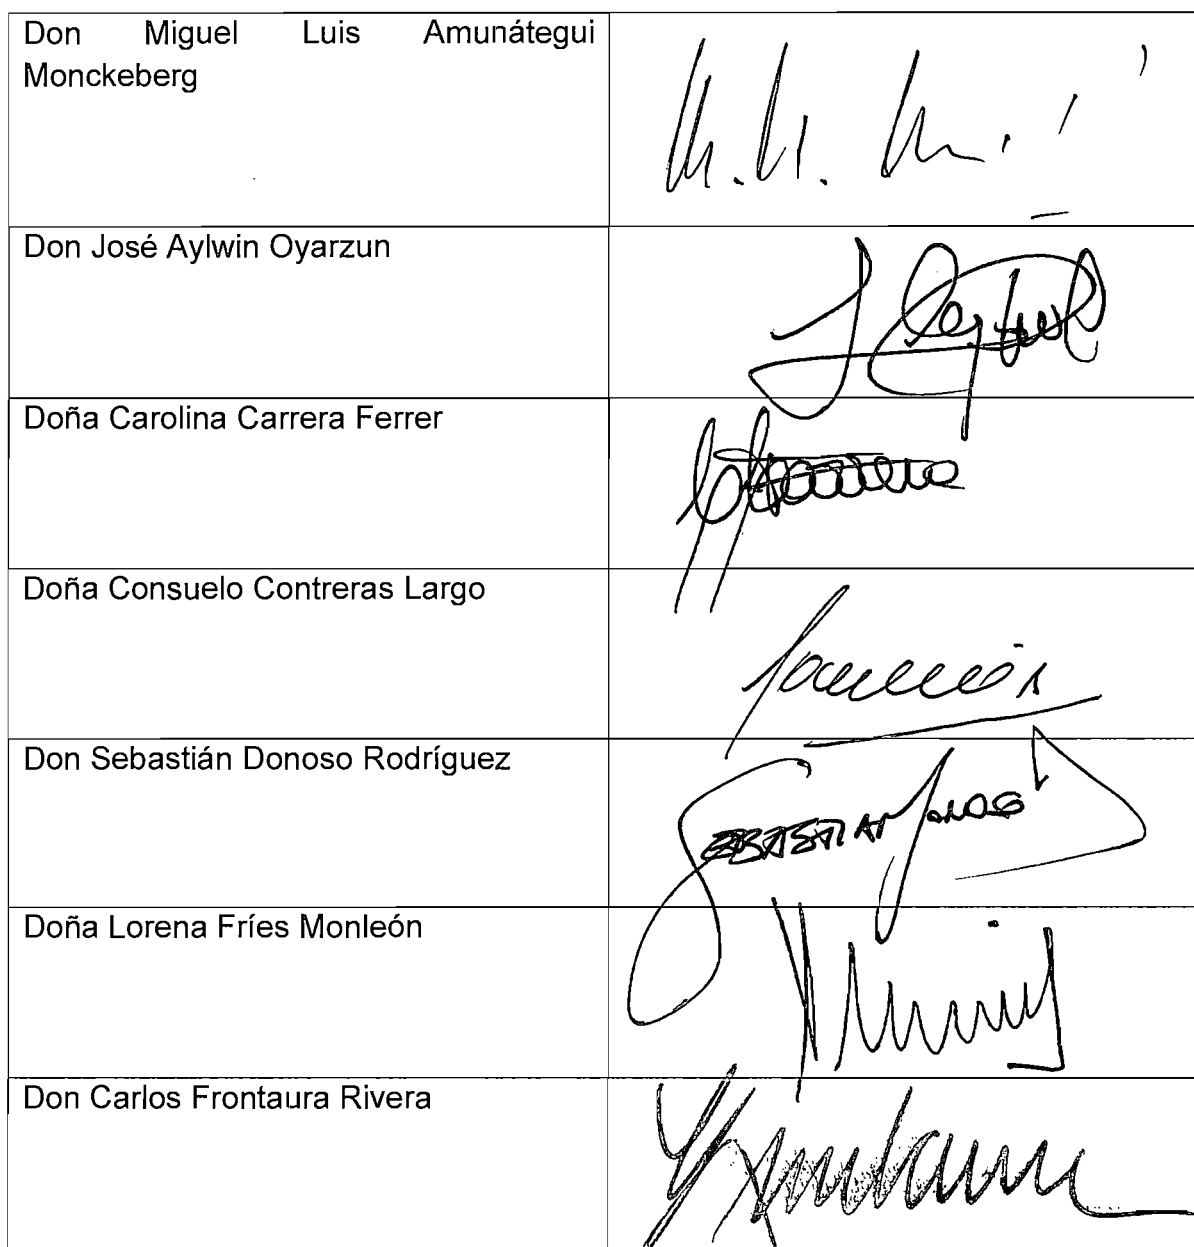 Don Miguel Luis Amunátegui
Monckeberg
Don José Aylwin Oyarzun
Doña Carolina Carrera Ferrer
Doña Consuelo Contreras Largo
Don Sebastián Donoso Rodríguez
SEBASTIAN
Doña Lorena Fríes Monleón
Don Carlos Frontaura Rivera